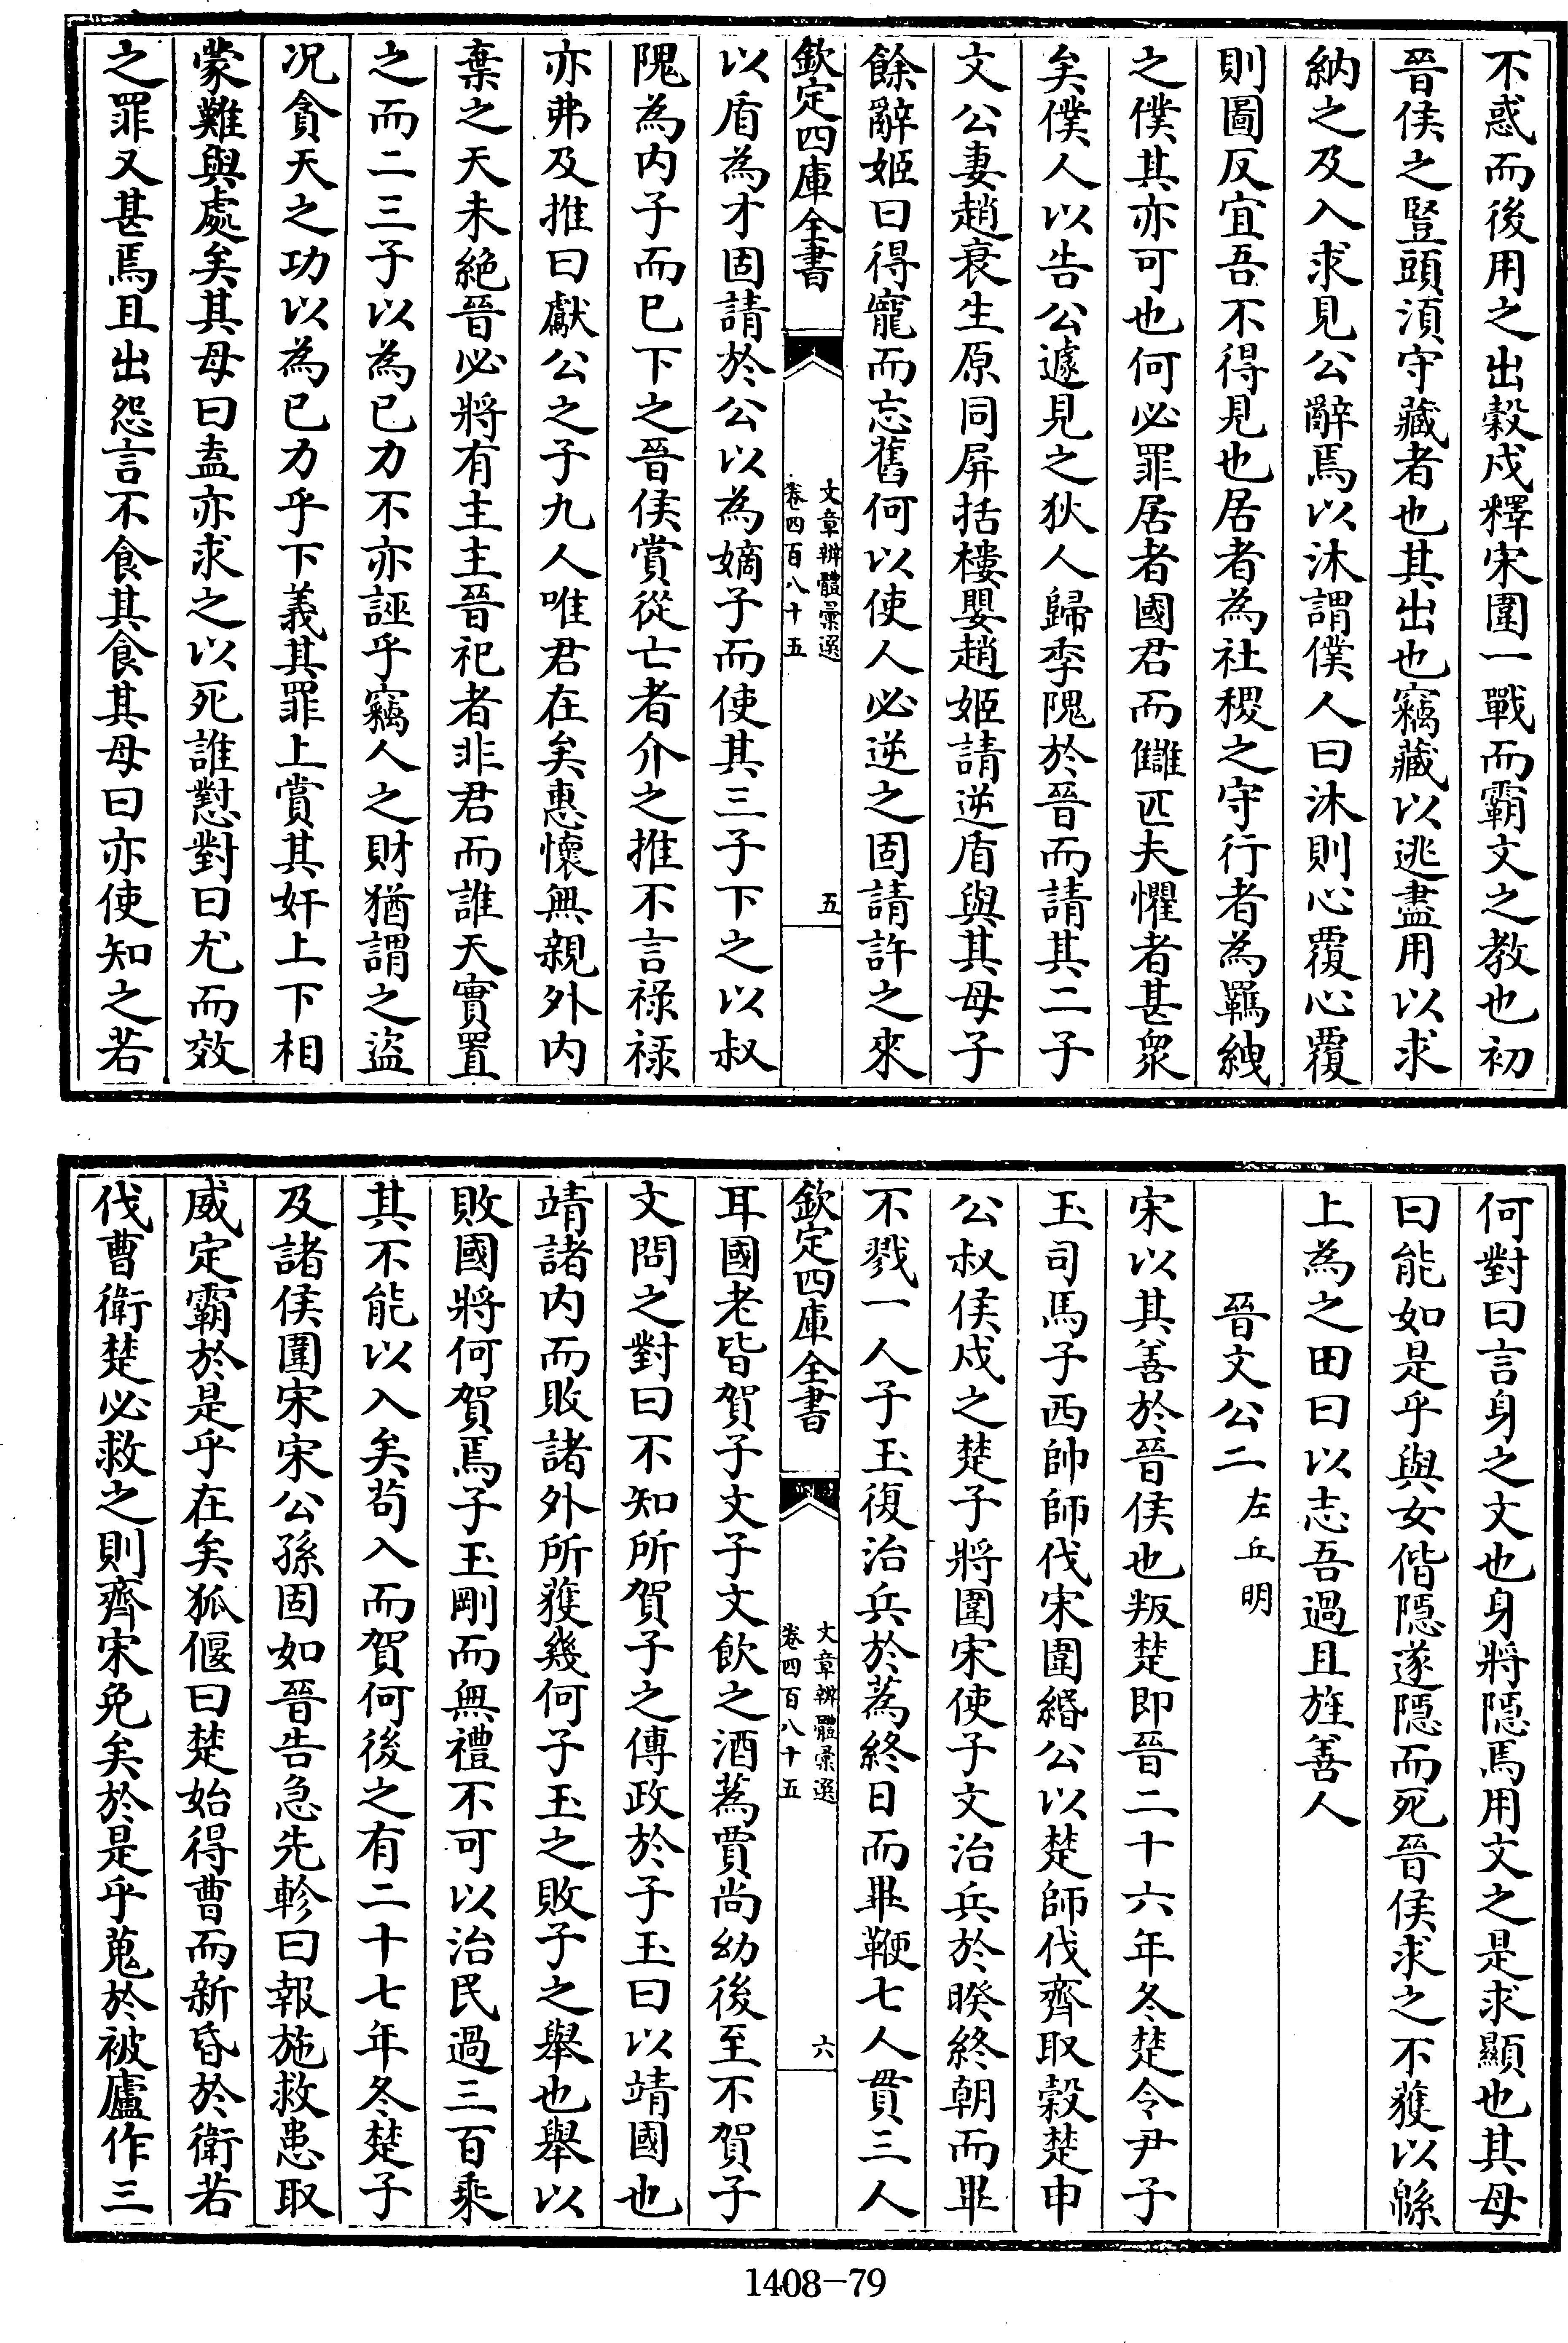 不惑而後用之出穀戍釋宋圍一戰而霸文之教也初
晉侯之豎頭湏守藏者也其出也竊藏以逃盡用以求
納之及入求見公辭焉以沐謂僕人曰沐則心覆心覆
則圖反宜吾不得見也居者為社稷之守行者為羈紲
之僕其亦可也何必罪居者國君而讎匹夫懼者甚衆
矣僕人以告公遽見之狄人歸季隗於晉而請其二子
文公妻趙衰生原同屏括樓嬰趙姬請逆盾與其母子
餘辭姬曰得寵而忘舊何以使人必逆之固請許之來
欽定四庫全書
文章辨體彙選
卷四百八十五
五
以盾為才固請於公以為嫡子而使其三子下之以叔
隗為内子而已下之晉侯賞從亡者介之推不言禄禄
亦弗及推曰獻公之子九人唯君在矣惠懷無親外内
棄之天未絶晉必將有主主晉祀者非君而誰天實置
之而二三子以為已力不亦誣乎竊人之財猶謂之盜
况貪天之功以為已力乎下義其罪上賞其奸上下相
蒙難與處矣其母曰盍亦求之以死誰懟對曰尤而效
之罪又甚焉且出怨言不食其食其母曰亦使知之若
何對曰言身之文也身將隠焉用文之是求顯也其母
曰能如是乎與女偕隠遂隠而死晉侯求之不獲以緜
上為之田曰以志吾過且旌善人
晉文公二 左丘明
宋以其善於晉侯也叛楚即晉二十六年冬楚令尹子
玉司馬子西帥師伐宋圍緡公以楚師伐齊取穀楚申
公叔侯戍之楚子將圍宋使子文治兵於暌終朝而畢
不戮一人子玉復治兵於蒍終日而畢鞭七人貫三人
欽定四庫全書
文章辨體彙選
卷四百八十五
六
耳國老皆賀子文子文飲之酒蒍賈尚幼後至不賀子
文問之對曰不知所賀子之傳政於子玉曰以靖國也
靖諸内而敗諸外所獲幾何子玉之敗子之舉也舉以
敗國將何賀焉子玉剛而無禮不可以治民過三百乘
其不能以入矣茍入而賀何後之有二十七年冬楚子
及諸侯圍宋宋公孫固如晉告急先軫曰報施救患取
威定霸於是乎在矣狐偃曰楚始得曹而新昏於衛若
伐曹衛楚必救之則齊宋免矣於是乎蒐於被廬作三
1408—79